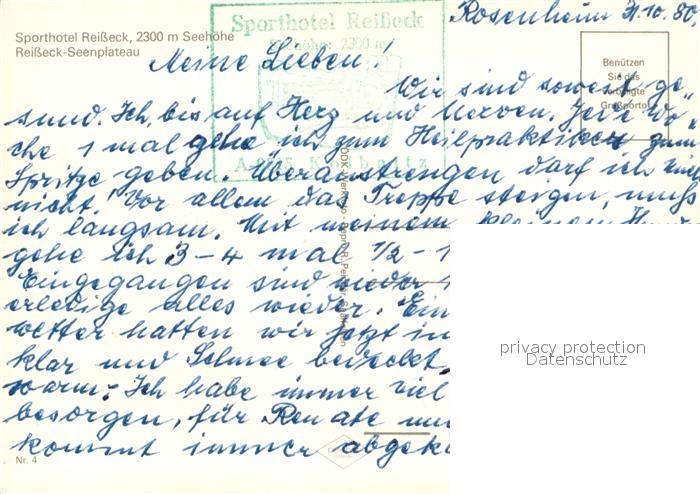 Sporthotel Reißeck, 2300 m Seehöhe
Reißeck-Seenplateau
Sporthotel Reißeck
Seehöhe: 2300 m
Kolbnitz
Rosenheim 31.10.80,
Benützen
Sie das
verbilligte
Großporto
Meine Lieben!
Wir sind soweit ge-
sund. Ich, bis auf Herz und Nerven. Jede Wo-
che 1 mal gehe ich zum Heilpraktiker zum
Spritze geben. Überanstrengen darf ich mich
nicht. Vor allem das Treppe steigen, muß
ich langsam. Mit meinem kleinen
gehe ich 3-4 mal 1/2 - 1
Eingegangen sind wieder
erledige alles wieder.
wetter hatten wir jetzt in
klar und Schnee bedeckt,
warm. Ich habe immer viel
besorgen, für Renate
kommt immer
privacy protection
Datenschutz
Nr. 4